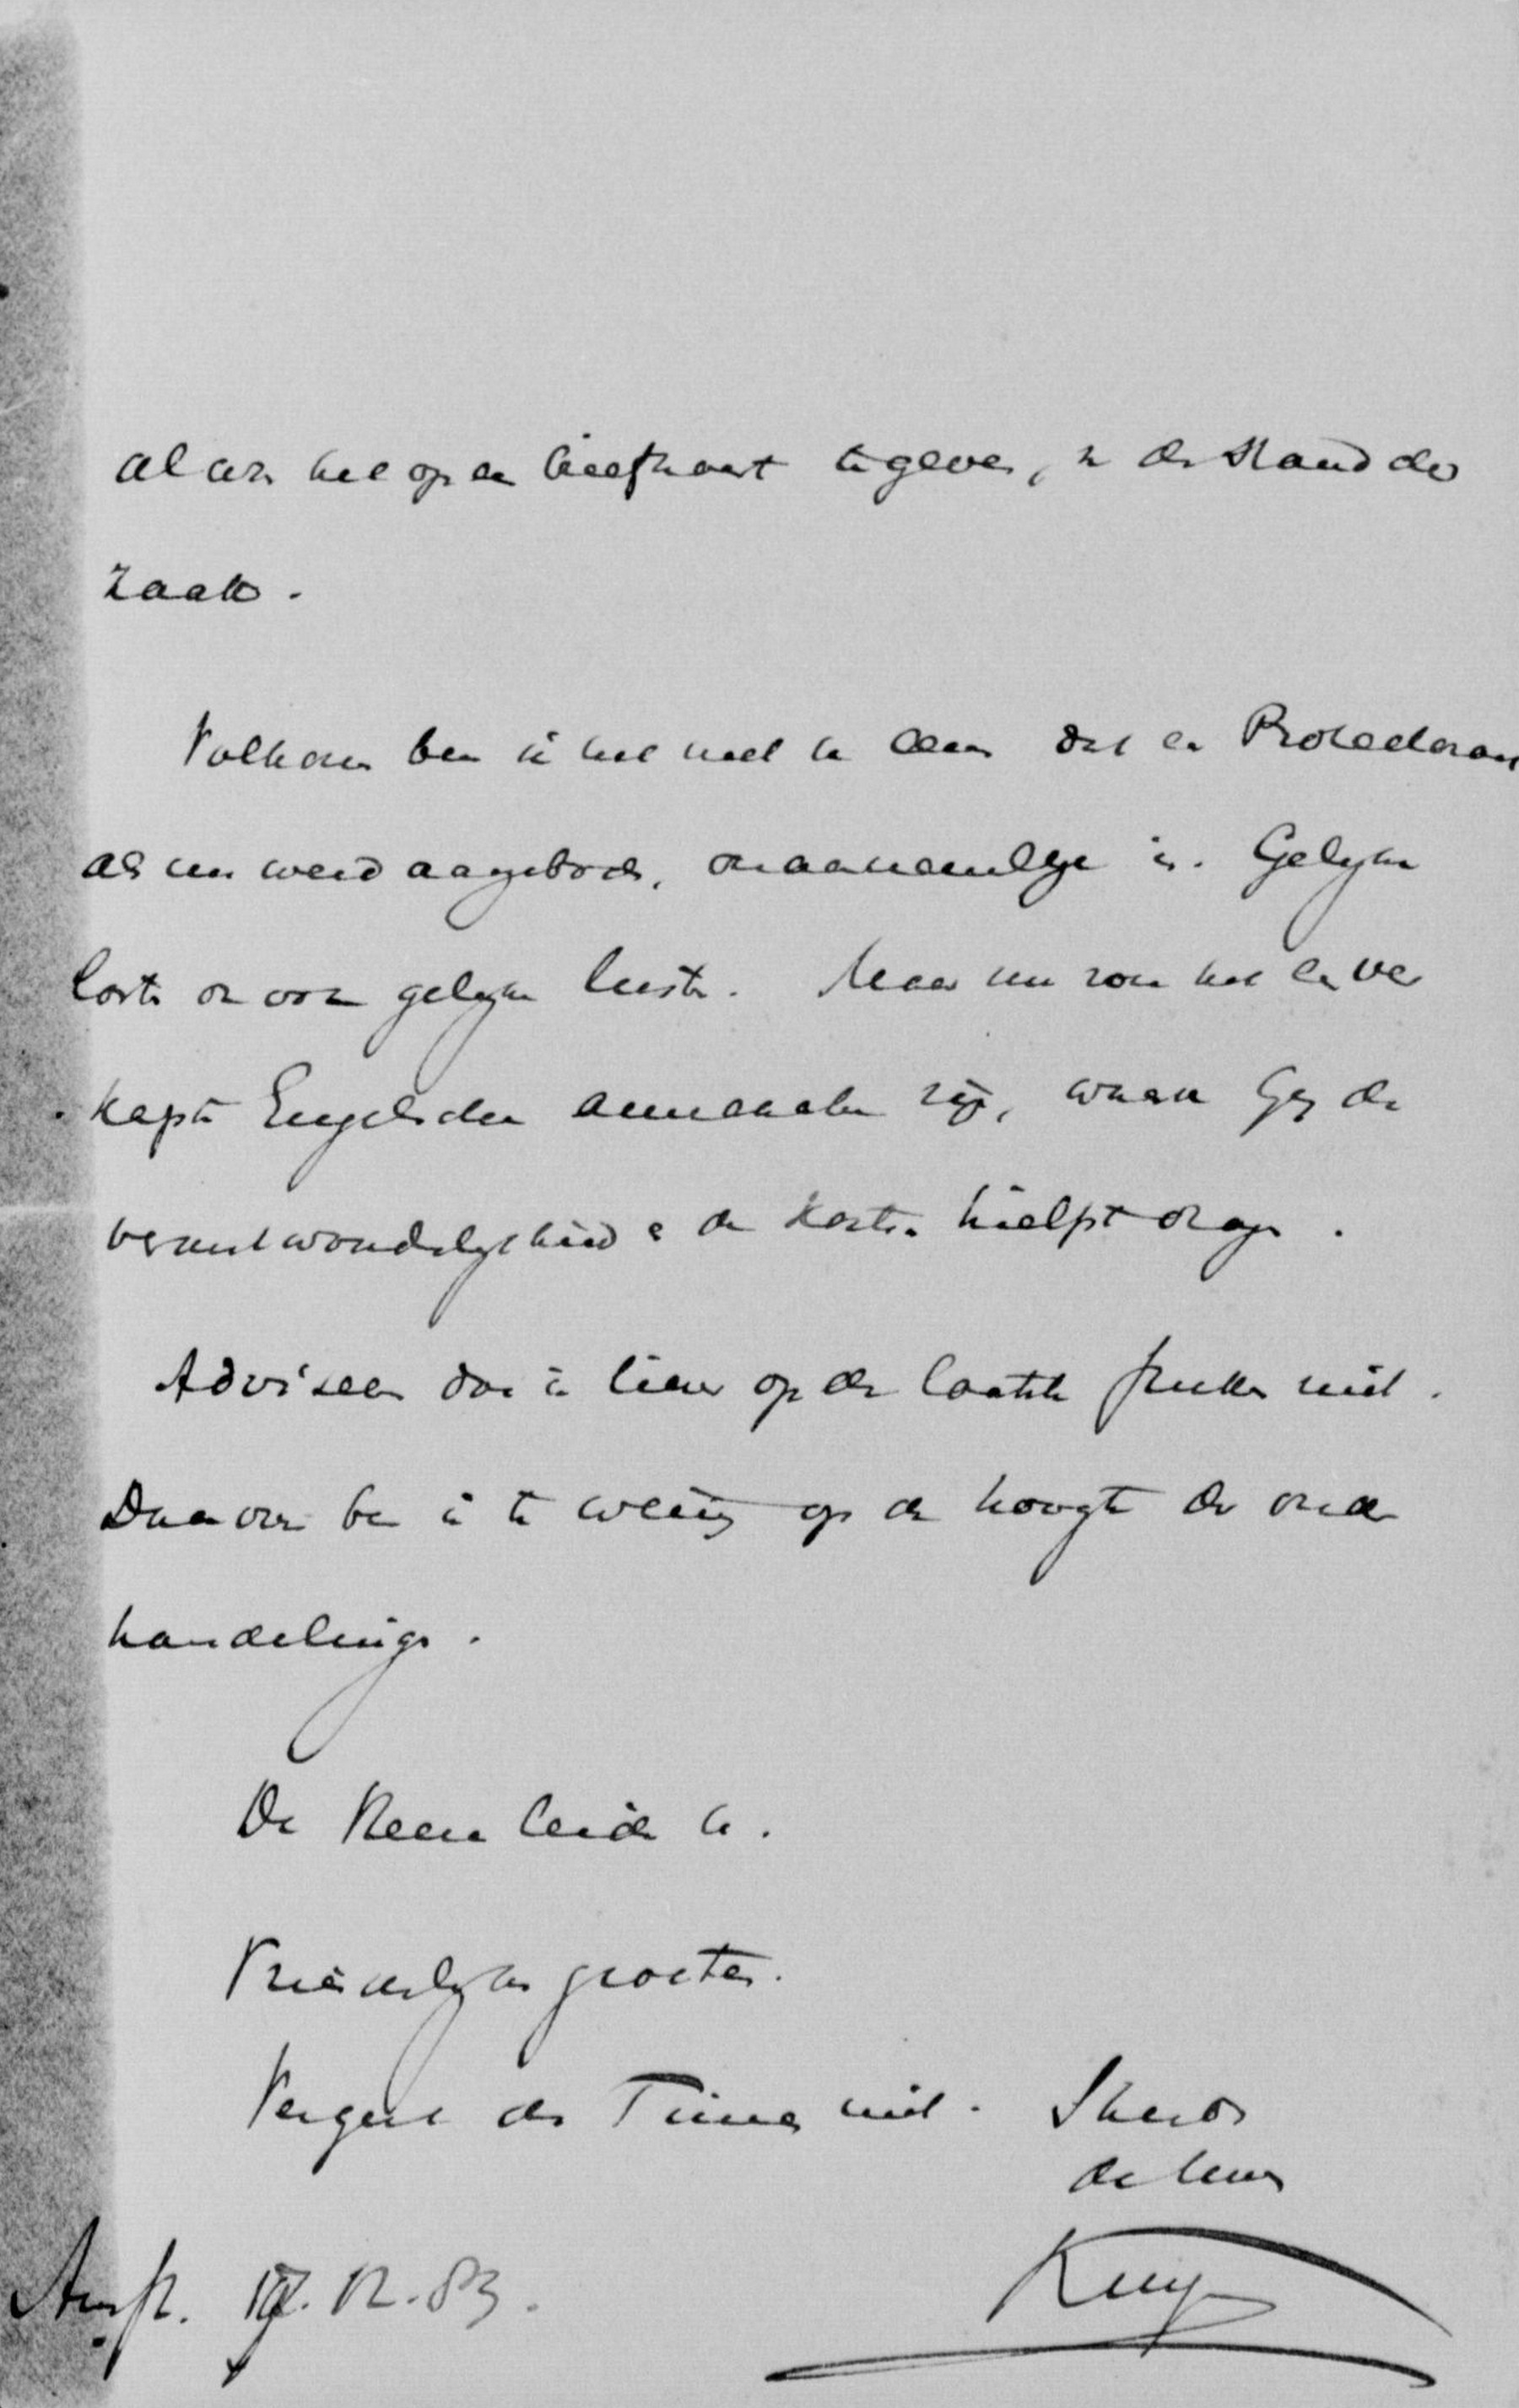 als om het op een briefkaart te geven, in den stand der
zaak.
Volkomen ben ik het met u eens dat een Protectoraat
als nu werd aangeboden, onaannemelijk is. Gelijke
lasten voor gelijke lusten. Maar nu zou het een ver
kapte Engelsche annexatie zijn, waarin Gij de
verantwoordelijkheid en de kosten hielpt dragen.
Adviseer dus in liever op de laatste stukken niet.
Daarvoor ben ik te weinig op de hoogte der onder
handelingen.
De Heere leide u.
Vriendelijke groeten.
Vergeet de Times niet. Steeds
de Uwe
Kuyper
Amst. 12.83.